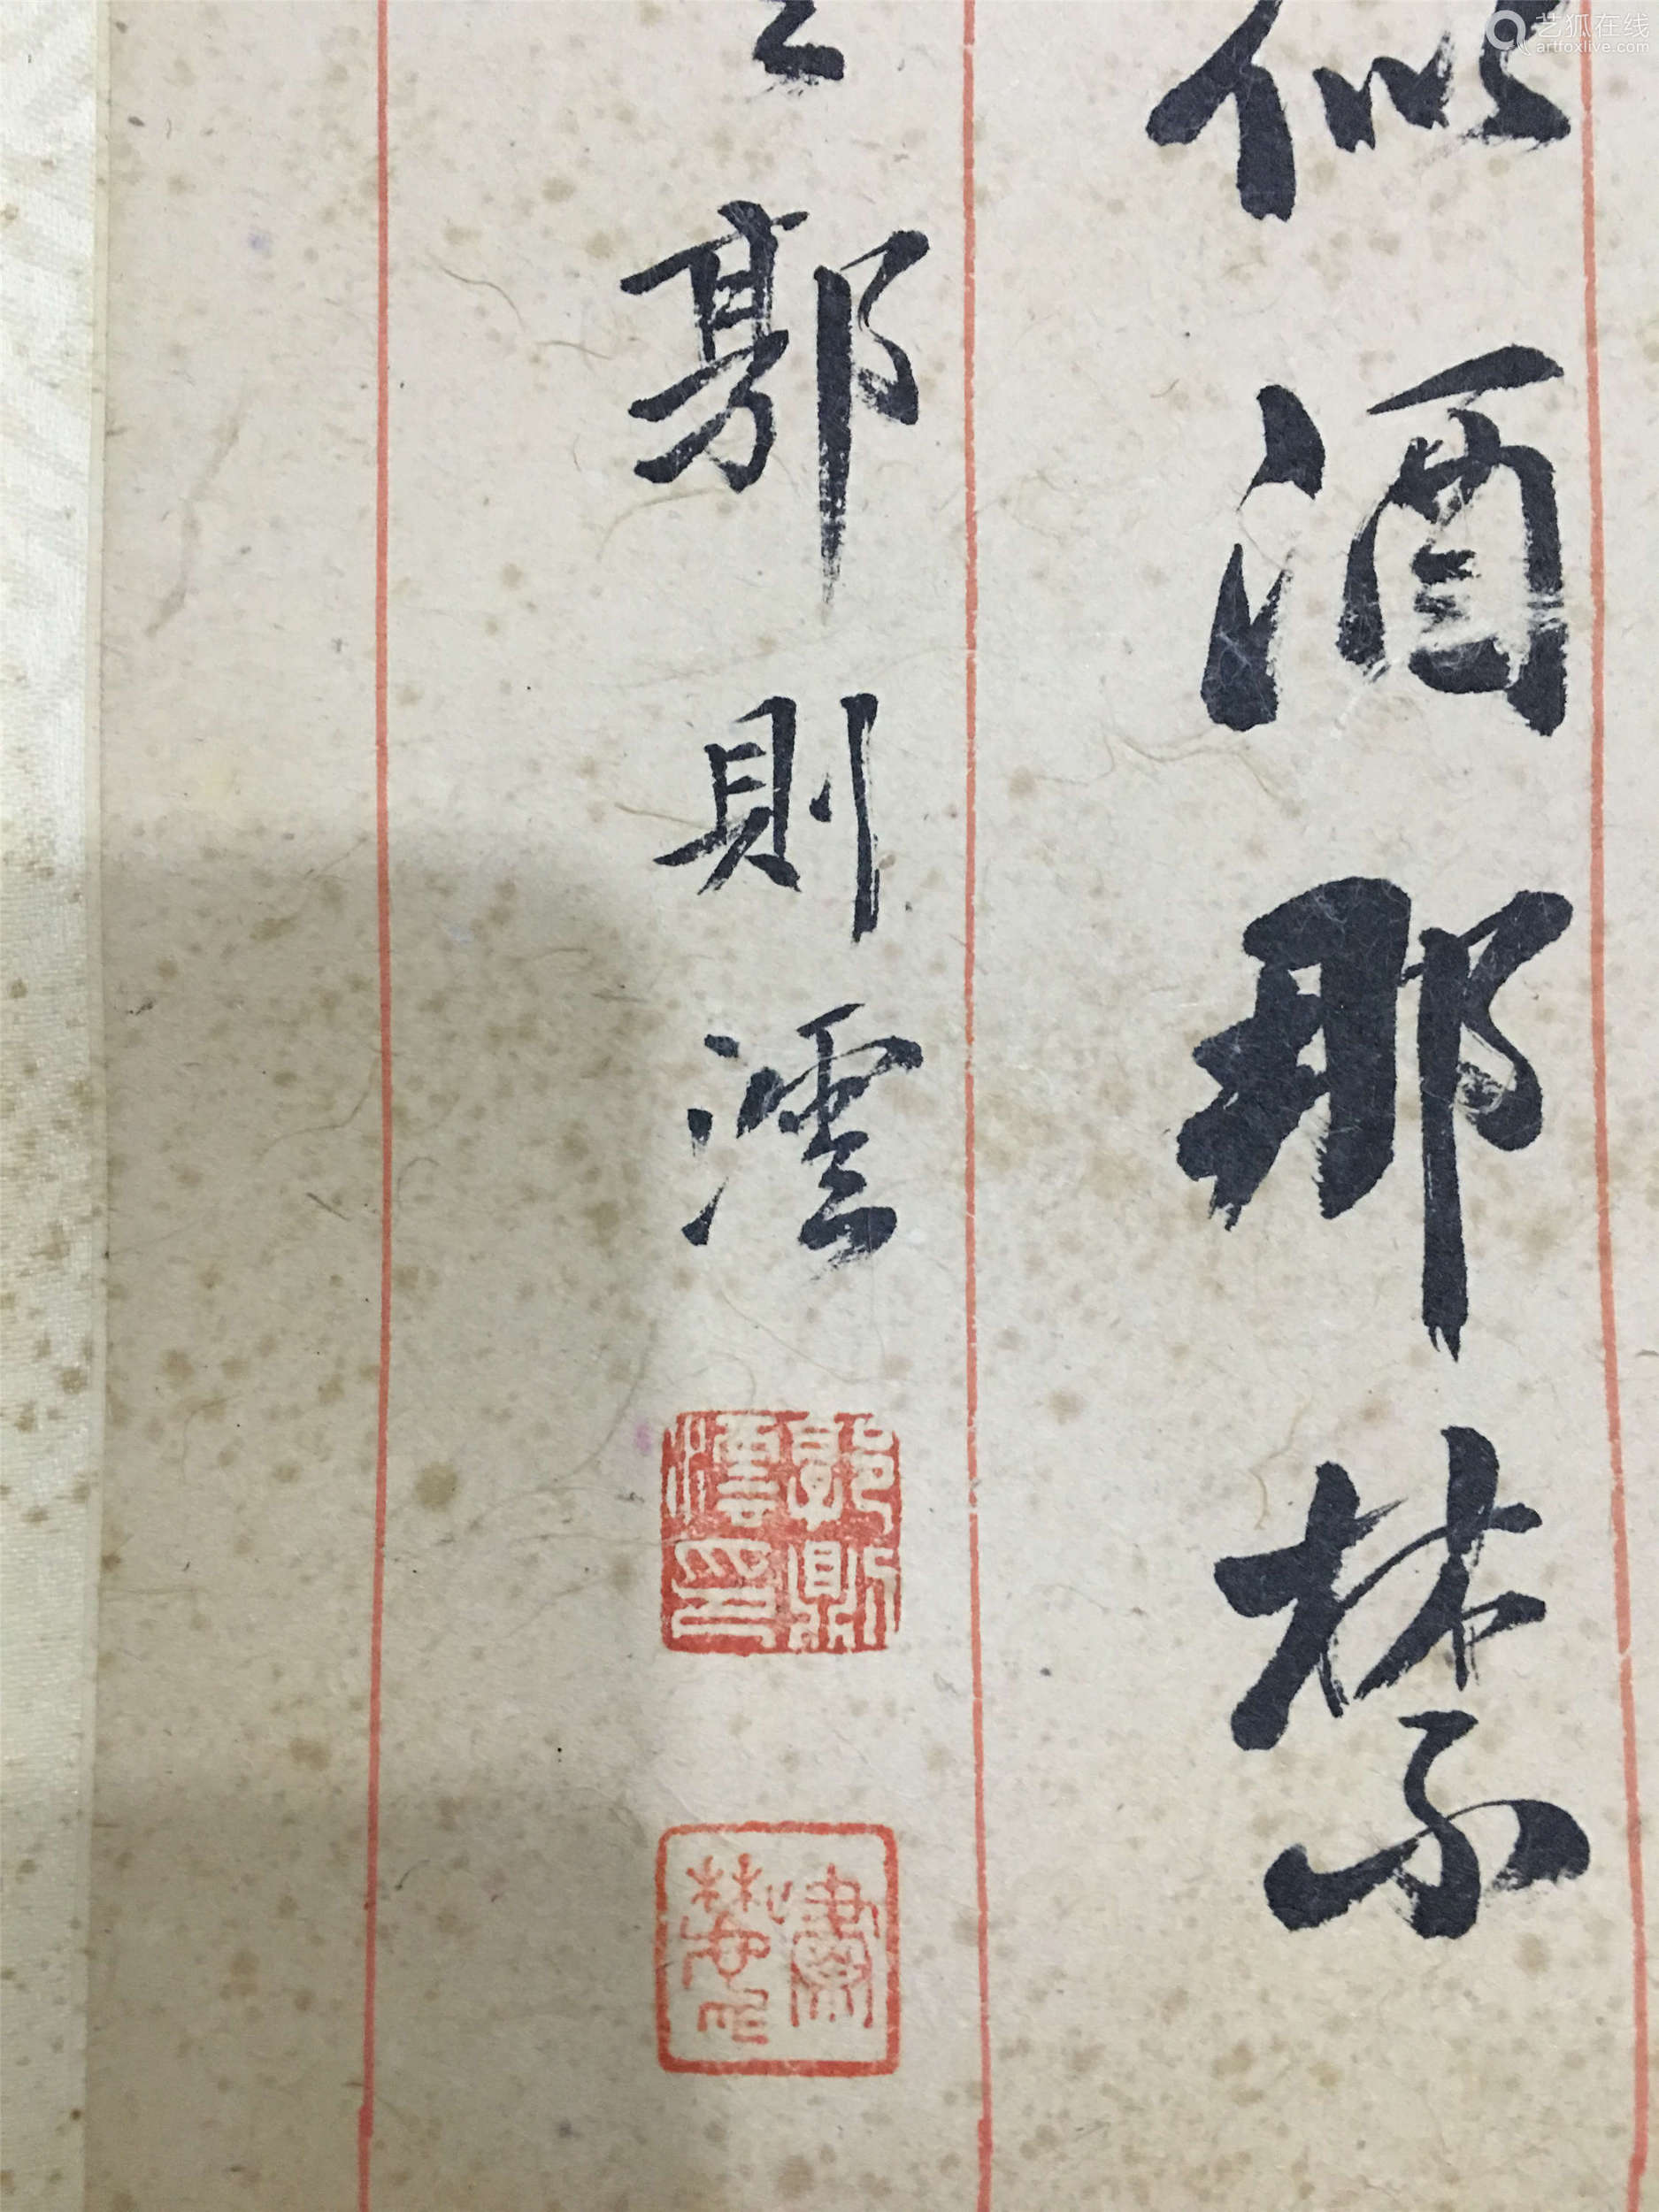 似酒那禁
郭則澐
郭則澐印
艺狐在线
artfoxlive.com